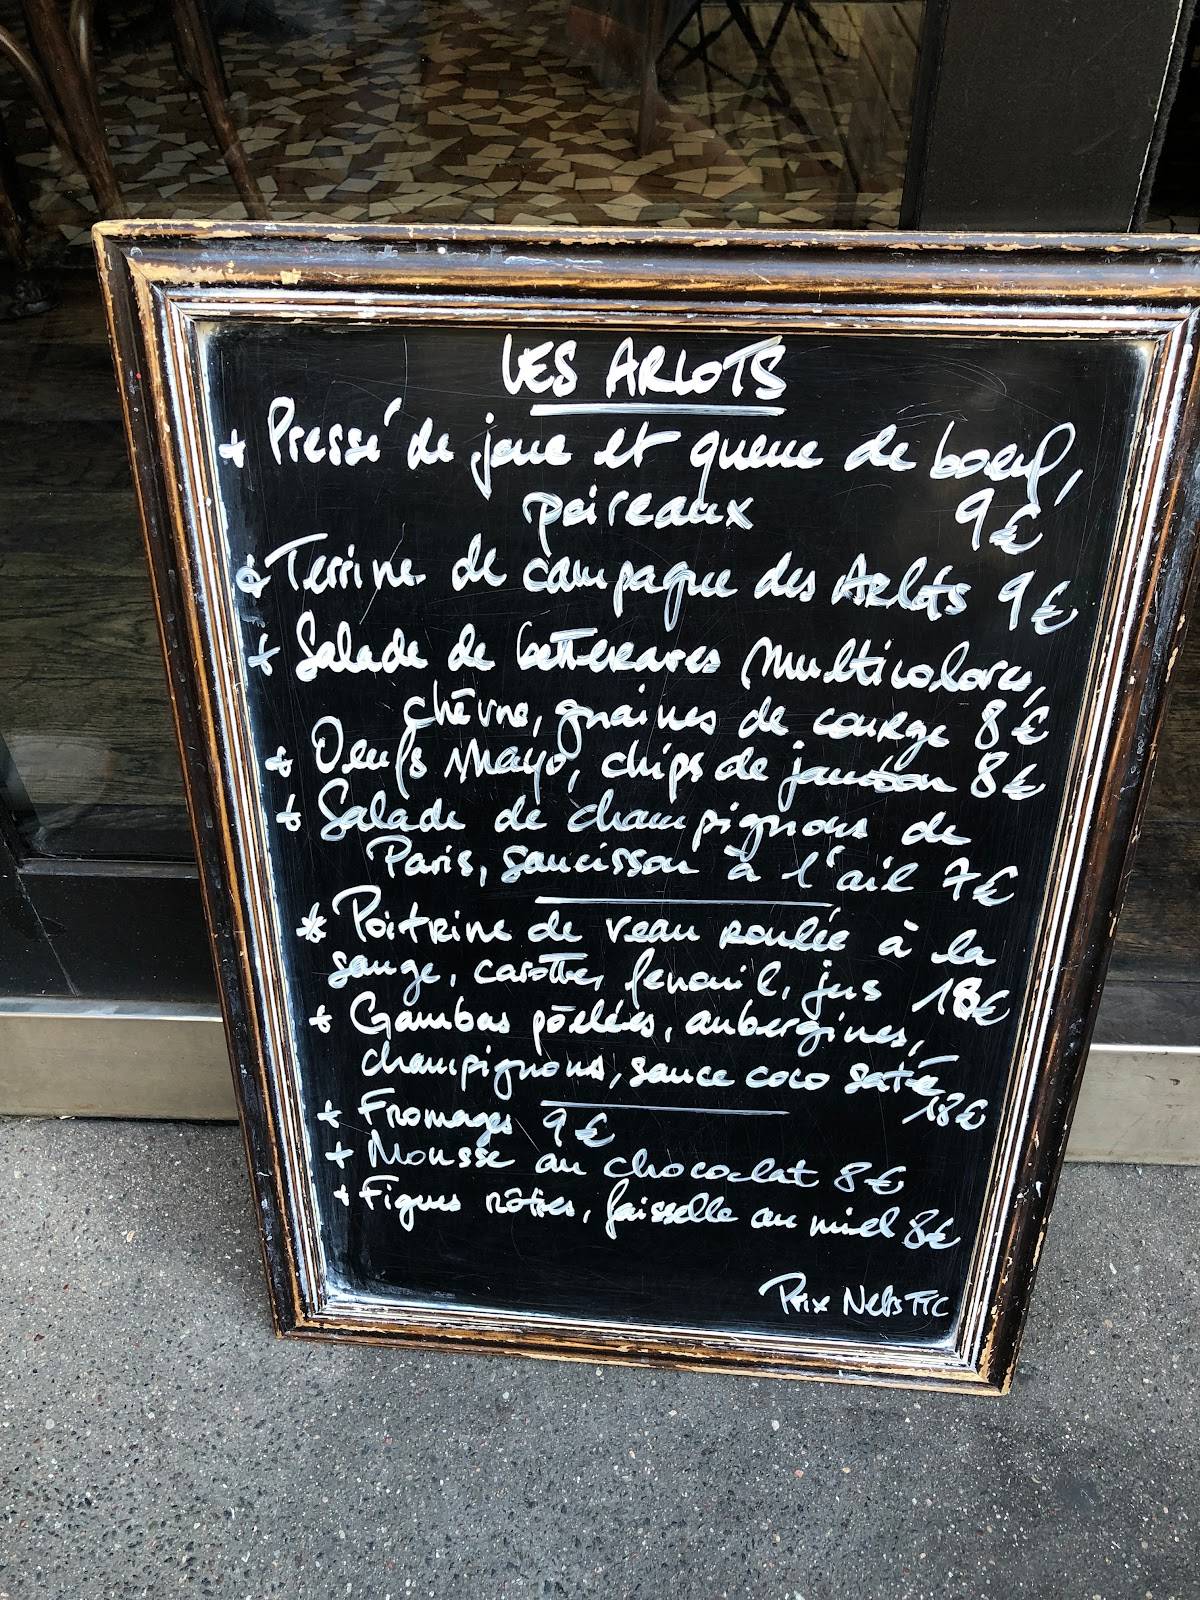 LES ARLOTS
+ Pressé de joue et queue de boeuf,
poireaux 9€
+ Terrine de campagne des Arlots 9€
+ Salade de betteraves multicolores,
chèvre, graines de courge 8€
+ Oeufs Mayo, chips de jambon 8€
+ Salade de champignons de
Paris, saucisson à l'ail 7€
* Poitrine de veau roulée à la
sauge, carottes, fenouil, jus 18€
+ Gambas pôelées, aubergines,
champignons, sauce coco saté
18€
+ Fromages 9€
+ Mousse au chocolat 8€
+ Figues rôties, faisselle au miel 8€
Prix Nets TTC